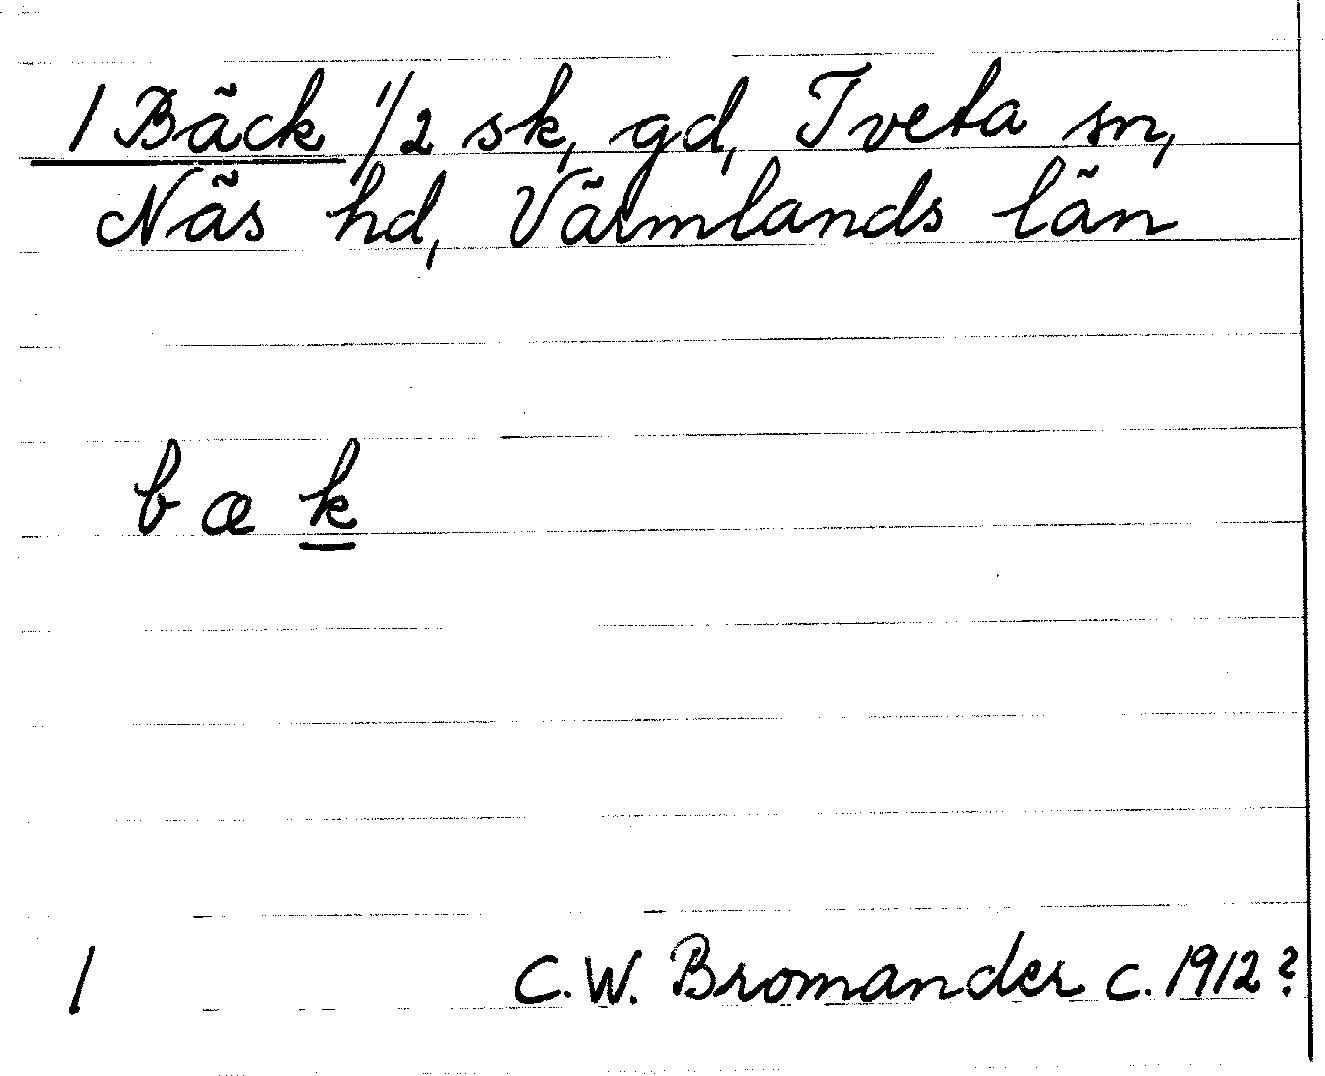 1 Bäck 1/2 sk, gd, Tveta sn,
Näs hd, Värmlands län
b æ k
1 C.W. Bromander c. 1912?